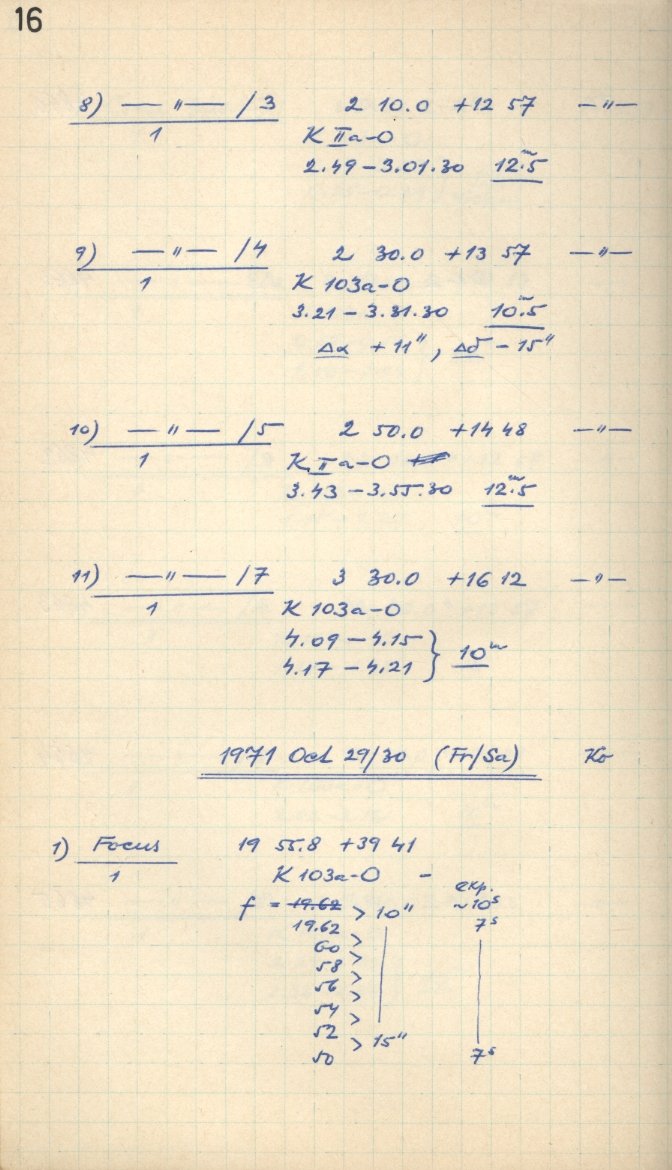 16
8) — " — /3 2 10.0 +12 57 — " —
1 K IIa-O
2.49 – 3.01.30 12.5ᵐ
9) — " — /4 2 30.0 +13 57 — " —
1 K 103a-O
3.21 – 3.31.30 10.5ᵐ
Δα +11", Δδ -15"
10) — " — /5 2 50.0 +14 48 — " —
1 K IIa-O
3.43 – 3.55.30 12.5ᵐ
11) — " — /7 3 30.0 +16 12 — " —
1 K 103a-O
4.09 – 4.15 } 10ᵐ
4.17 – 4.21
1971 Oct 29/30 (Fr/Sa) Ko
1) Focus 19 55.8 +39 41
1 K 103a-O –
exp.
f = 19.62 > 10" ~10ˢ
19.62 7ˢ
60 >
58 >
56 >
54 >
52 >
50 > 15" 7ˢ